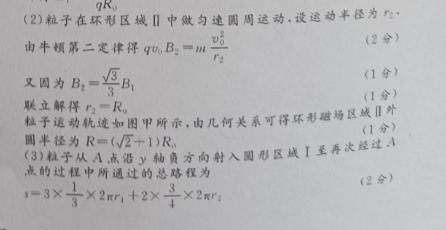 qR₀
(2)粒子在环形区域Ⅱ中做匀速圆周运动,设运动半径为r₂,
由牛顿第二定律得qv₀B₂=m v₀²/r₂ (2分)
又因为B₂=√3/3 B₁ (1分)
联立解得r₂=R₀ (1分)
粒子运动轨迹如图甲所示,由几何关系可得环形磁场区域Ⅱ外
圆半径为R=(√2+1)R₀ (1分)
(3)粒子从A点沿y轴负方向射入圆形区域Ⅰ至再次经过A
点的过程中所通过的总路程为
s=3×1/3×2πr₁+2×3/4×2πr₂ (2分)